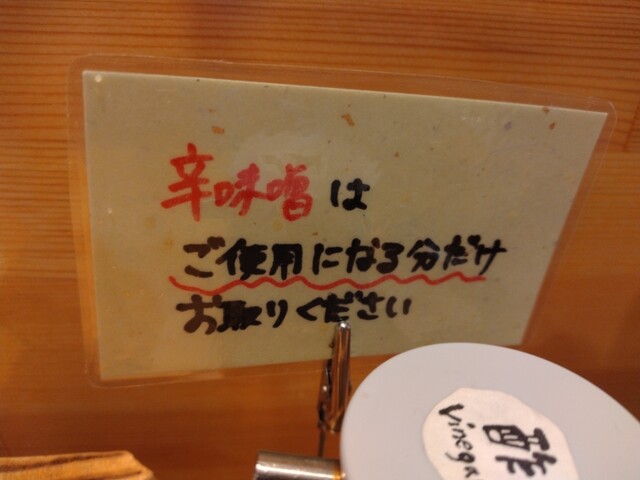 辛味噌は
ご使用になる分だけ
お取りください
酢
Vinega